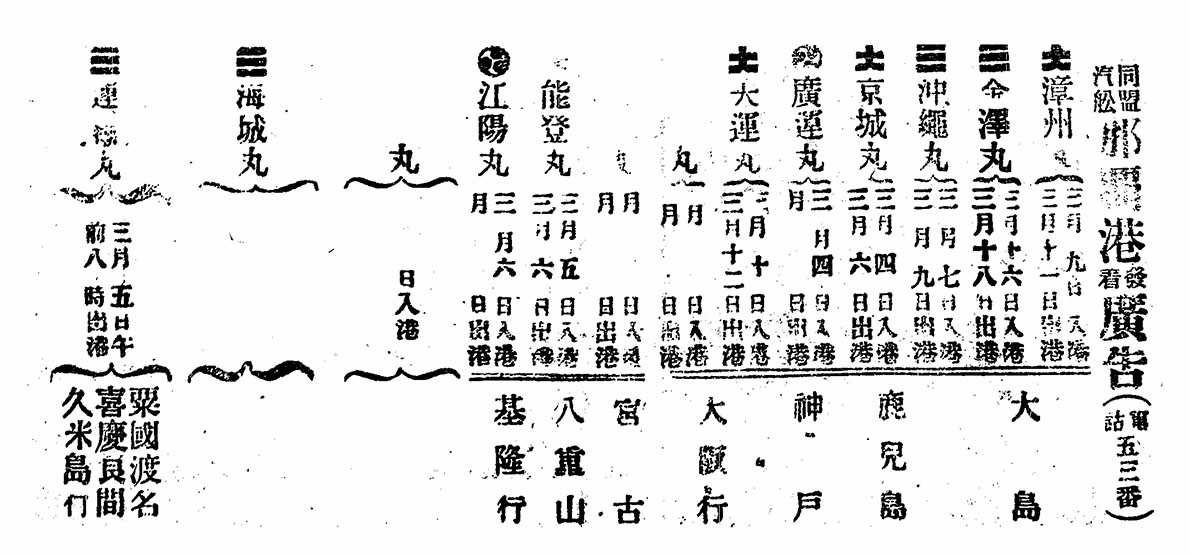 同盟汽舩那覇港發着廣告(電話五三番)
漳州丸
三月九日入港
三月十一日出港
金澤丸
三月十六日入港
三月十八日出港
沖繩丸
三月七日入港
三月九日出港
京城丸
三月四日入港
三月六日出港
廣運丸
三月四日入港
月 日出港
大運丸
三月十日入港
三月十二日出港
丸
月 日入港
月 日出港
大島
鹿兒島
神戸
大阪行
月 日入港
月 日出港
能登丸
三月五日入港
三月六日出港
江陽丸
三月六日入港
月 日出港
宮古
八重山
基隆行
丸
日入港
海城丸
丸
三月五日午
前八時出港
粟國渡名
喜慶良間
久米島行